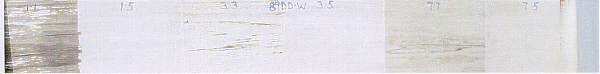 1.1 1.5 3.3 89DD-W 3.5 7.7 7.5